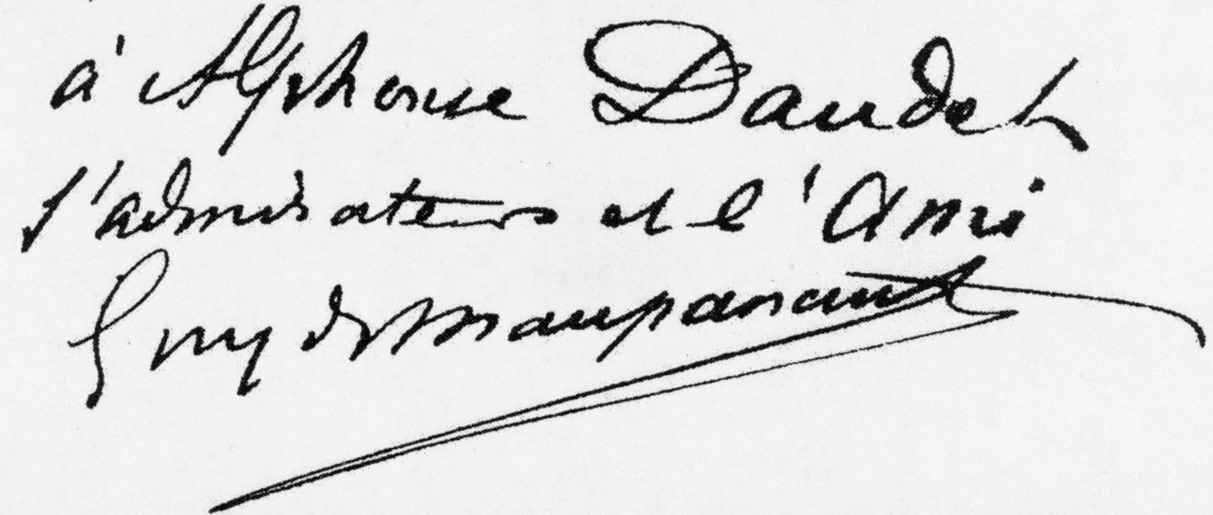 à Alphonse Daudet
l'admirateur et l'ami
Guy de Maupassant